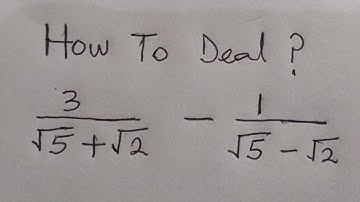 How To Deal ?
3/(√5+√2) - 1/(√5-√2)